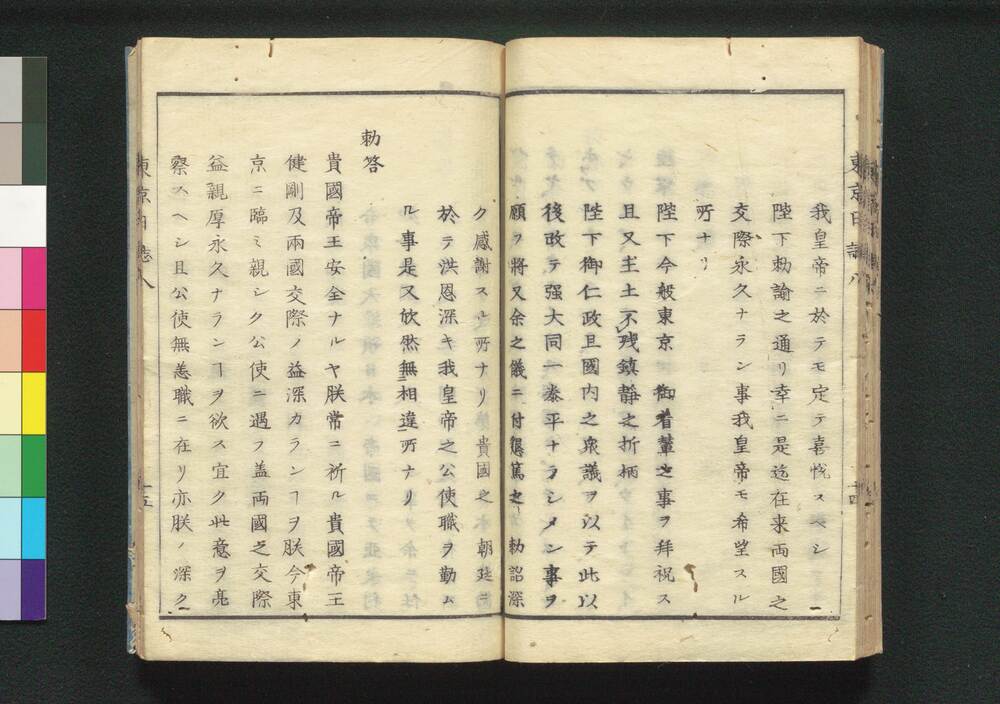 東京日誌八
十四
我皇帝ニ於テモ定テ喜悦スヘシ
陛下勅諭之通リ幸ニ是迄在来両國之
交際永久ナラン事我皇帝モ希望スル
所ナリ
陛下今般東京御着輦之事ヲ拜祝ス
且又主土不残鎮静之折柄
陛下御仁政且國内之衆議ヲ以テ此以
後政テ强大同一泰平ナラシメン事ヲ
願フ將又余之儀ニ付懇篤之勅詔深
ク感謝スル所ナリ貴國之朝廷ニ
於テ洪恩深キ我皇帝之公使職ヲ勤ム
ル事是又欣然無相違所ナリ
勅答
貴國帝王安全ナルヤ朕常ニ祈ル貴國帝王
健剛及兩國交際ノ益深カランヿヲ朕今東
京ニ臨ミ親シク公使ニ遇フ盖両國之交際
益親厚永久ナランヿヲ欲ス宜ク此意ヲ亮
察スヘシ且公使無恙職ニ在リ亦朕ノ深ク
東京日誌八
十五